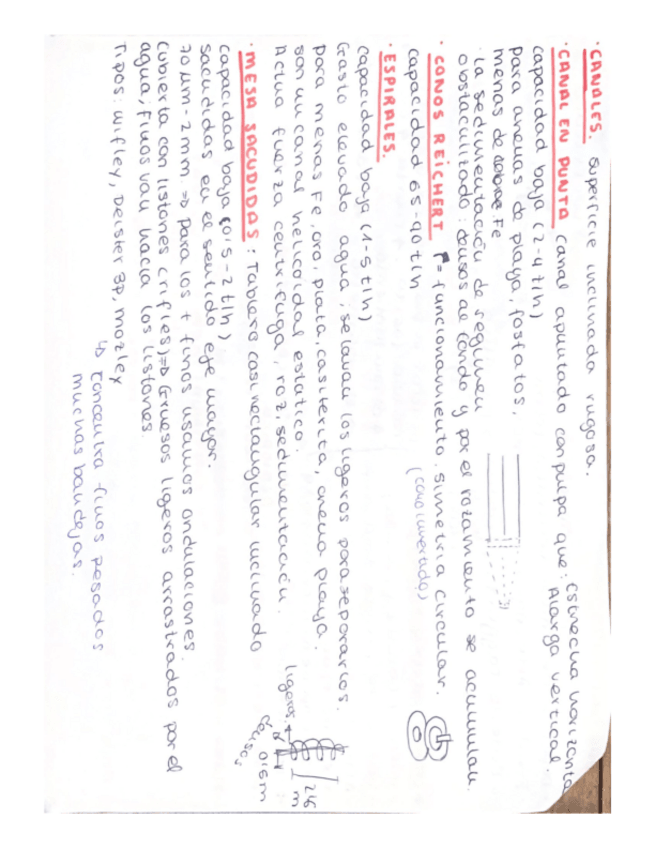 · CANALES. superficie inclinada rugosa.
· CANAL EN PUNTA canal apuntado con pulpa que: Estrecha horizonta
Alarga vertical.
capacidad baja (2-4 t/h)
para arenas de playa, fosfatos,
menas de Fe
· la sedimentación de regimen
obstaculizado: densos al fondo y por el rozamiento se acumulan.
· CONOS REICHERT r = funcionamiento. Simetría circular.
capacidad 65-90 t/h (cono invertido)
· ESPIRALES.
capacidad baja (1-5 t/h)
Gasto elevado agua; se lavan los ligeros para separarlos.
para menas Fe, oro, plata, casiterita, arena playa.
son un canal helicoidal estático.
Actua fuerza centrifuga, roz, sedimentación.
ligeros
densos
0'6 m
m
· MESA SACUDIDAS: Tablero casi rectangular inclinado
capacidad baja (0'5-2 t/h)
sacudidas en el sentido eje mayor.
70 µm-2mm => para los + finos usamos ondulaciones.
cubierta con listones (rifles) => Gruesos ligeros arrastrados por el
agua; Finos van hacia los listones.
Tipos: wifley, Deister BP, mozley
↳ concentra finos pesados
muchas bandejas.